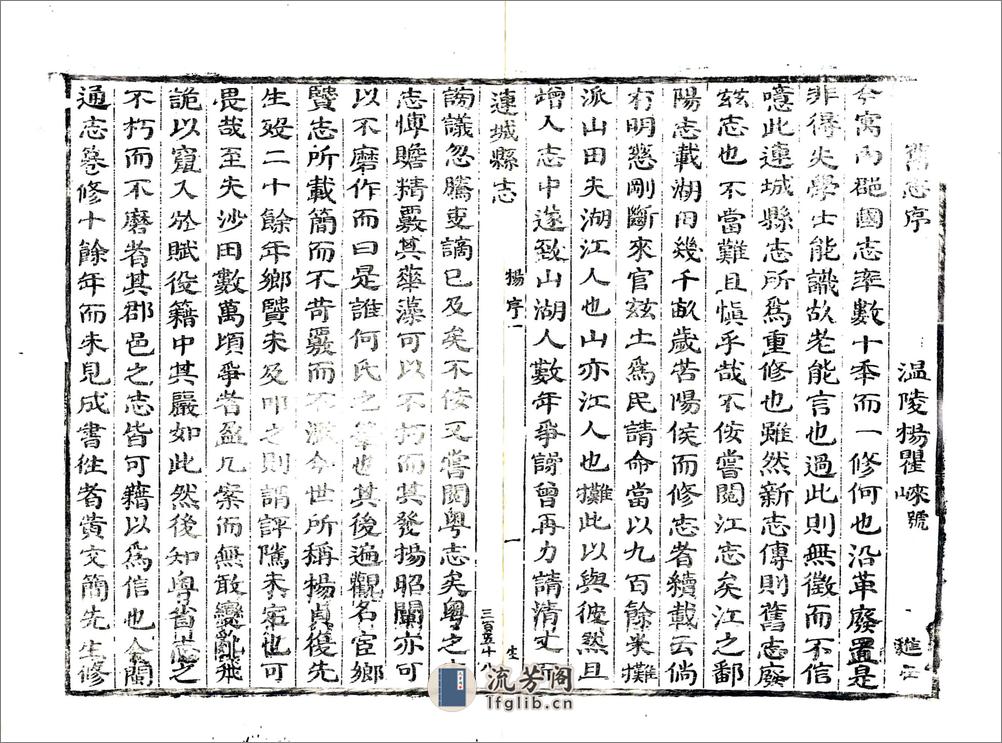 舊志序
温陵楊瞿崍號
今寓內郡國志率數十季而一修何也沿革廢置是
非得失學士能識故老能言也過此則無徵而不信
噫此連城縣志所為重修也雖然新志傳則舊志廢
茲志也不當難且慎乎哉不佞嘗閱江志矣江之鄱
陽志載湖田幾千畝歲苦陽侯而修志者續載云倘
有明慈剛斷來官茲土為民請命當以九百餘米攤
派山田夫湖江人也山亦江人也攤此以與彼然且
增入志中遂致山湖人數年爭謗曾再力請清丈而
連城縣志
楊序一
一
三百五十八
生
謗議忽騰吏謫已及矣不佞又嘗閱粵志矣粵之
志慱贍精覈其華藻可以不朽而其發揚昭闡亦可
以不磨作而曰是誰何氏之筆也其後遍觀名宦鄉
賢志所載簡而不苛覈而不濫今世所稱楊貞復先
生歿二十餘年鄉賢未及叩之則謂評隲未定也可
畏哉至夫沙田數萬頃爭者盈几案而無敢變亂飛
詭以竄入於賦役籍中其嚴如此然後知粵省志之
不朽而不磨者其郡邑之志皆可藉以為信也今閩
通志纂修十餘年而未見成書徃者黄文簡先生修
流芳阁
lfglib.cn